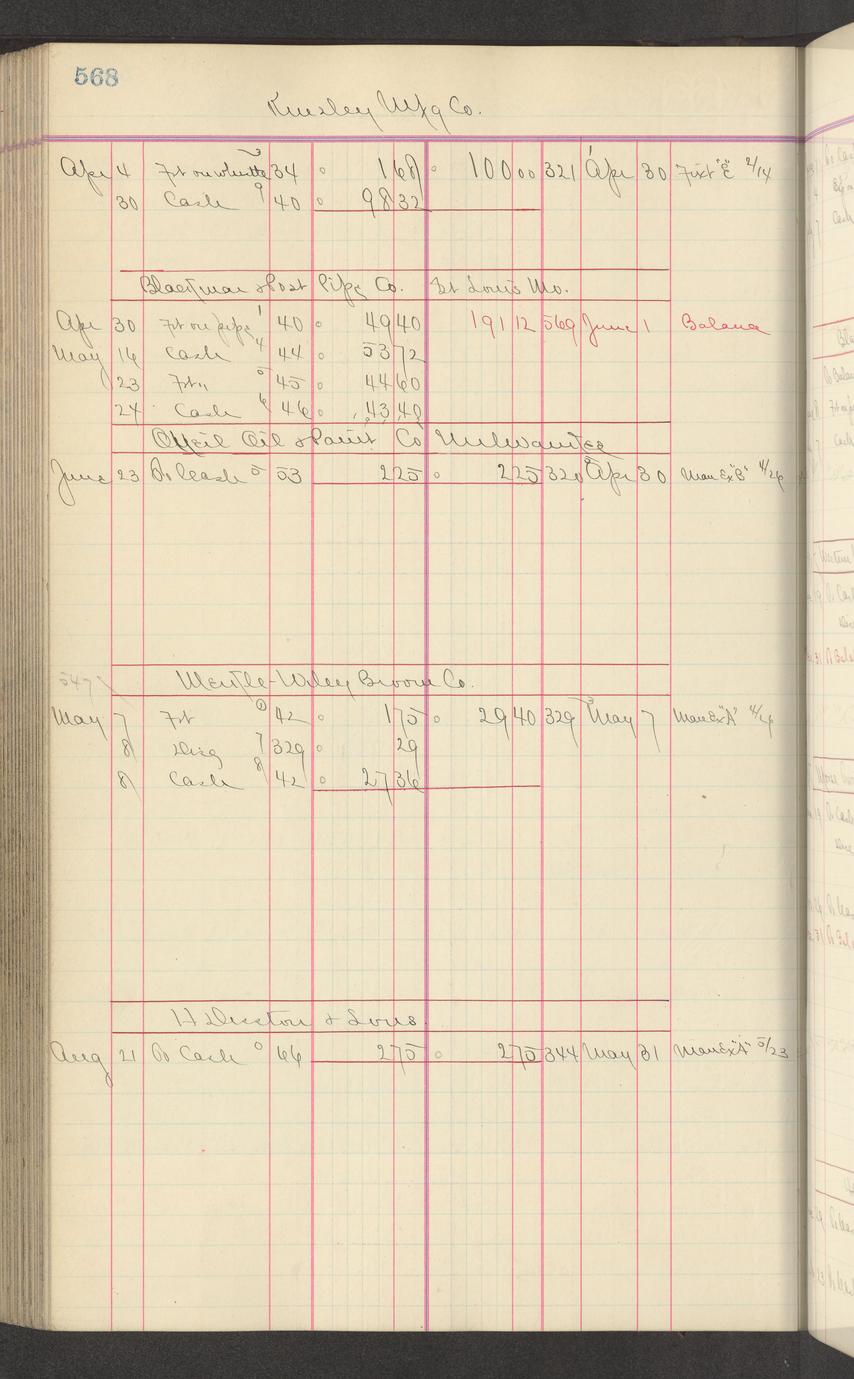 568
Kinsley Mfg Co.
Apr 4 Frt on 34 1 68 100 00 321 Apr 30 Fixt "E" 2/14
30 Cash 9 40 98 32
Blackmar & Post Pipe Co. St Louis Mo.
Apr 30 Frt on pipe 1 40 49 40 191 12 569 June 1 Balance
May 16 Cash 4 44 53 72
23 Frt " 5 45 44 60
24 Cash 6 46 43 40
ONeil Oil & Paint Co Milwaukee
June 23 To Cash 5 53 2 25 2 25 320 Apr 30 Man Ex "B" 4/26
547
Merkle-Wiley Broom Co.
May 7 Frt 42 1 75 29 40 329 May 7 Man Ex "A" 4/24
8 Disc 7 329 29
8 Cash 8 42 27 36
H Disston & Sons
Aug 21 To Cash 0 66 2 75 2 75 344 May 31 Man Ex "A" 5/23